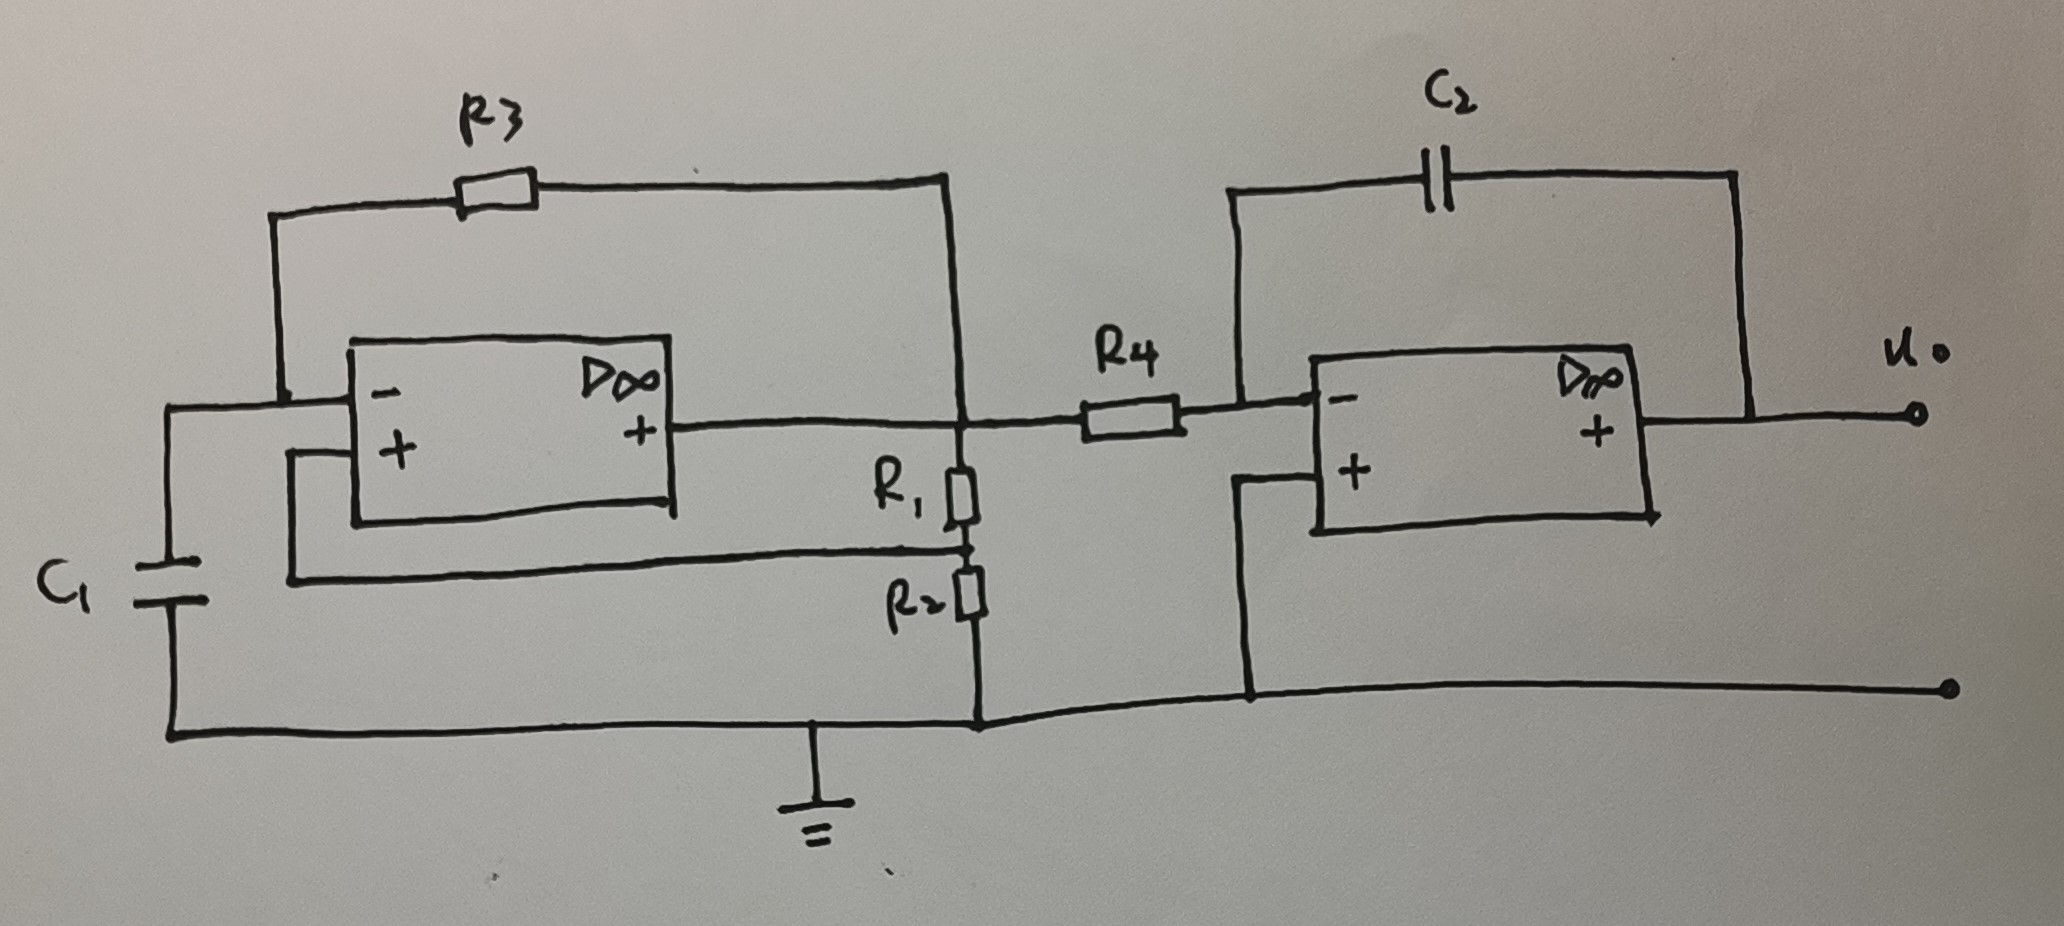 R3
C2
R4
u o
▷∞
▷∞
-
+
+
-
+
+
R1
C1
R2